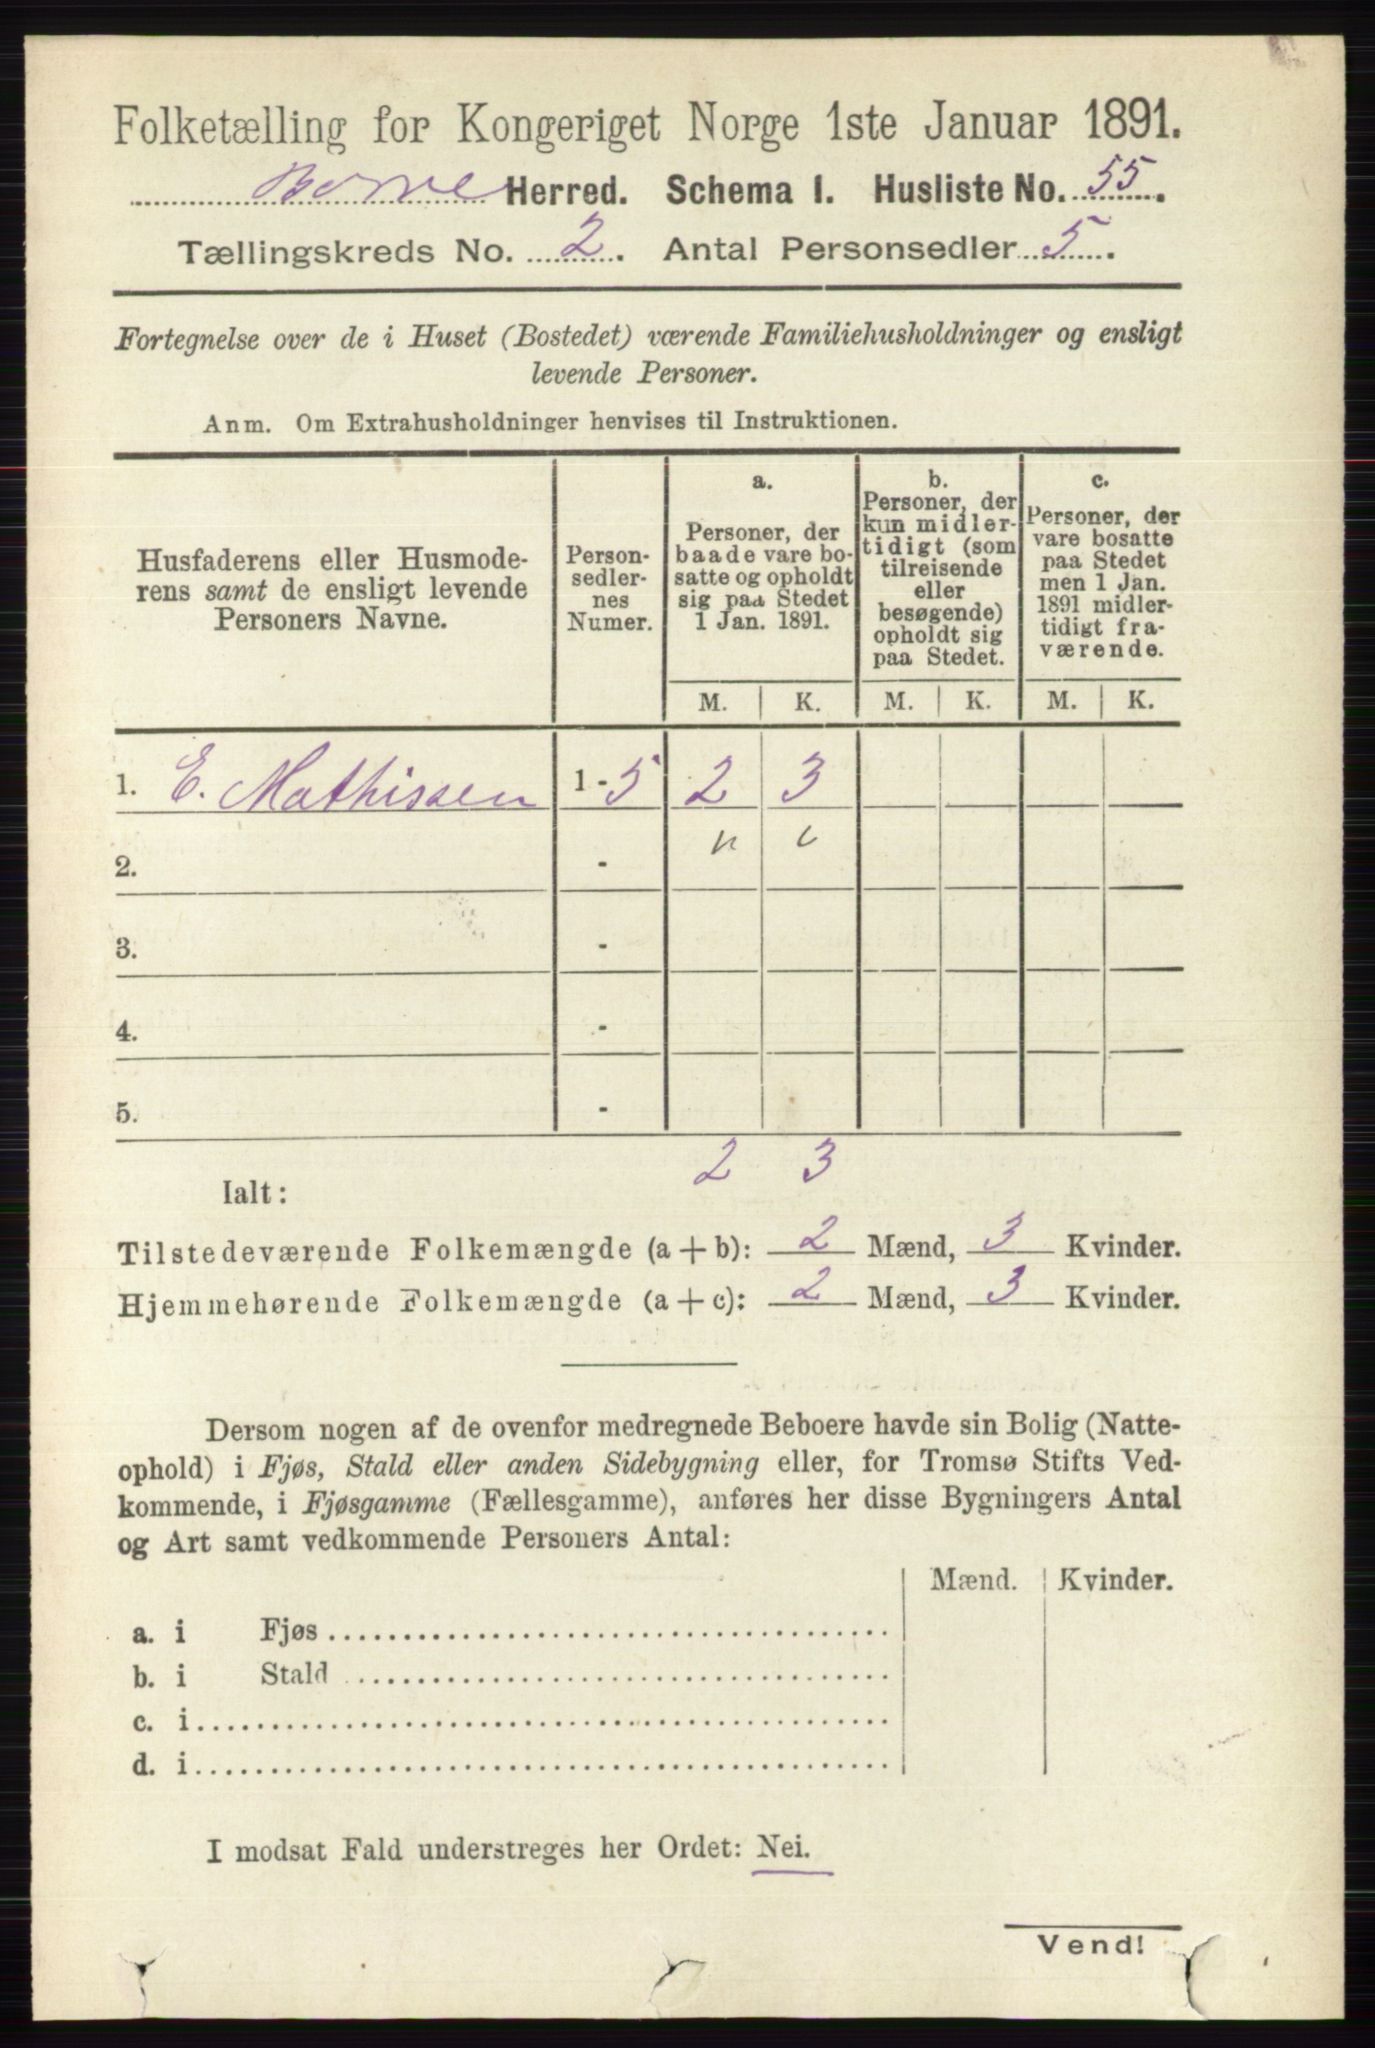 Folketælling for Kongeriget Norge 1ste Januar 1891.
Borre Herred. Schema I. Husliste No. 55.
Tællingskreds No. 2. Antal Personsedler 5.
Fortegnelse over de i Huset (Bostedet) værende Familiehusholdninger og ensligt
levende Personer.
Anm. Om Extrahusholdninger henvises til Instruktionen.
Husfaderens eller Husmode-
rens samt de ensligt levende
Personers Navne.
Person-
sedler-
nes
Numer.
a.
Personer, der
baade vare bo-
satte og opholdt
sig paa Stedet
1 Jan. 1891.
b.
Personer, der
kun midler-
tidigt (som
tilreisende
eller
besøgende)
opholdt sig
paa Stedet.
c.
Personer, der
vare bosatte
paa Stedet
men 1 Jan.
1891 midler-
tidigt fra-
værende.
M. K. M. K. M. K.
1. E. Mathissen 1 - 5 2 3
2. -
3. -
4. -
5. -
2 3
Ialt:
Tilstedeværende Folkemængde (a + b): 2 Mænd, 3 Kvinder.
Hjemmehørende Folkemængde (a + c): 2 Mænd, 3 Kvinder.
Dersom nogen af de ovenfor medregnede Beboere havde sin Bolig (Natte-
ophold) i Fjøs, Stald eller anden Sidebygning eller, for Tromsø Stifts Ved-
kommende, i Fjøsgamme (Fællesgamme), anføres her disse Bygningers Antal
og Art samt vedkommende Personers Antal:
Mænd. Kvinder.
a. i Fjøs
b. i Stald
c. i
d. i
I modsat Fald understreges her Ordet: Nei.
Vend!